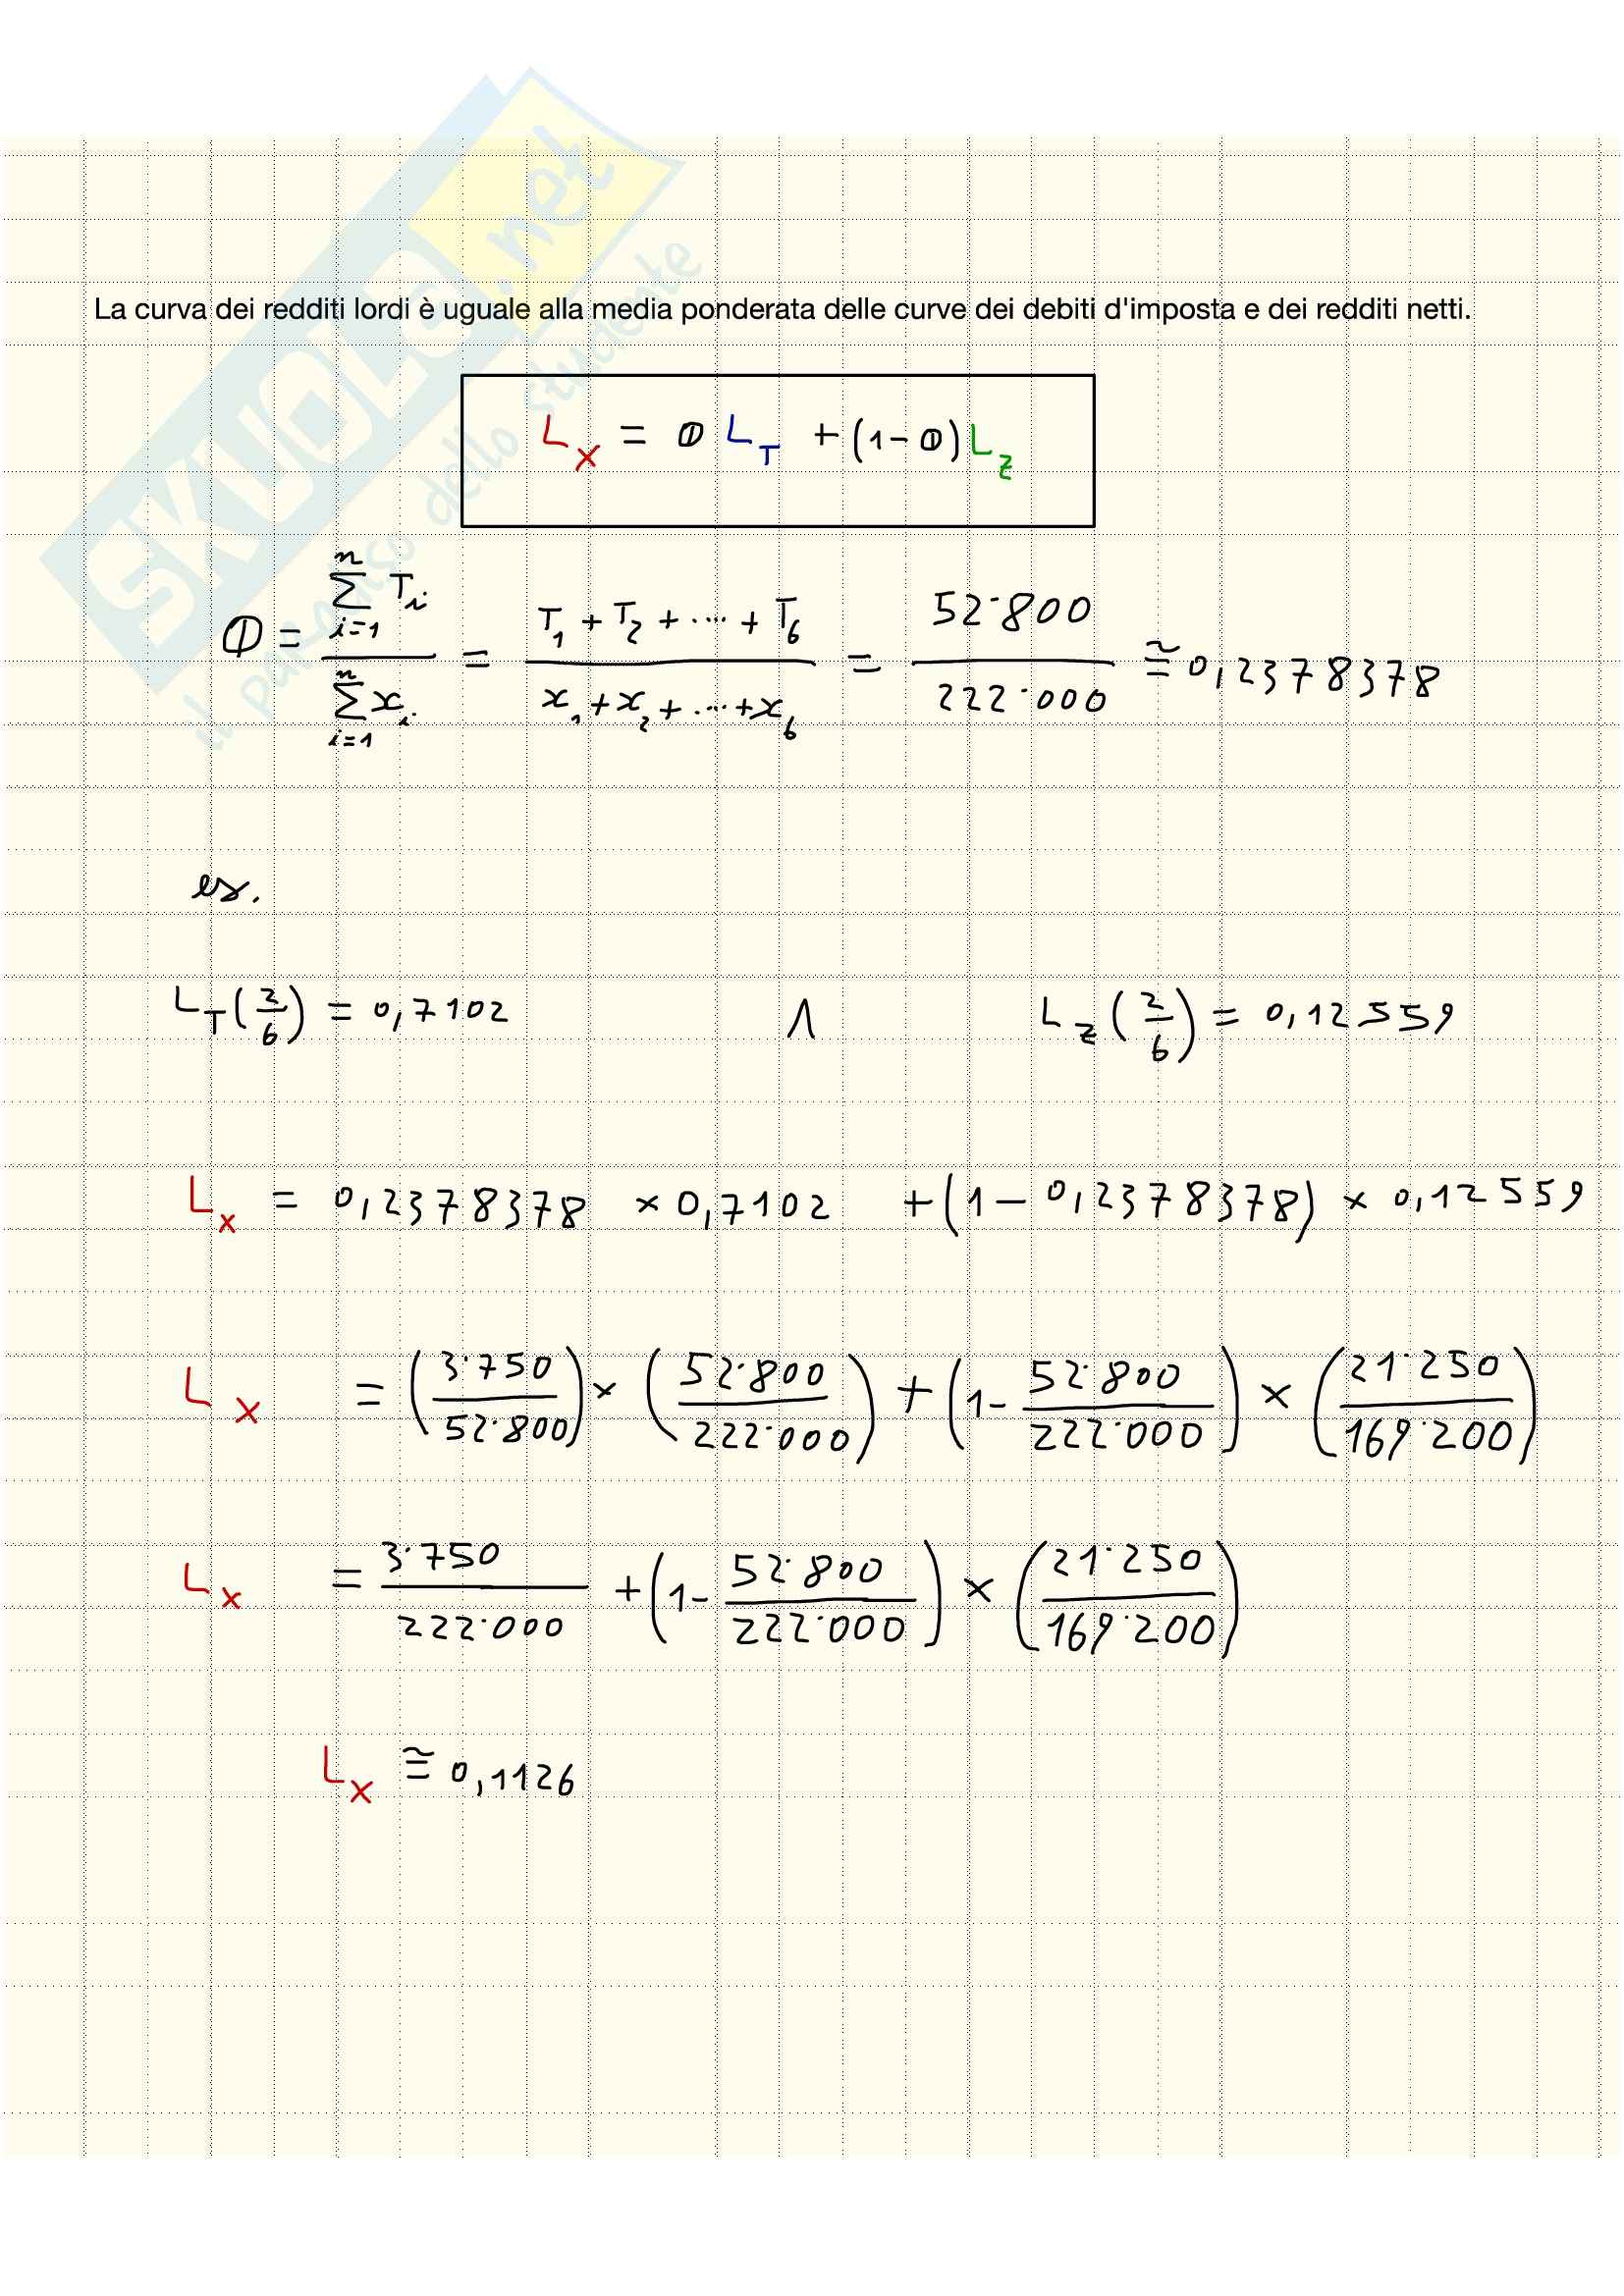 SKUOLA.net
il paradiso dello studente
La curva dei redditi lordi è uguale alla media ponderata delle curve dei debiti d'imposta e dei redditi netti.
L_X = θ L_T + (1-θ) L_Z
θ = \frac{\sum_{i=1}^{n} T_i}{\sum_{i=1}^{n} x_i} = \frac{T_1 + T_2 + ... + T_6}{x_1 + x_2 + ... + x_6} = \frac{52·800}{222·000} ≅ 0,2378378
es.
L_T(\frac{2}{6}) = 0,7102 ∧ L_Z(\frac{2}{6}) = 0,12559
L_X = 0,2378378 × 0,7102 + (1 - 0,2378378) × 0,12559
L_X = (\frac{3·750}{52·800}) × (\frac{52·800}{222·000}) + (1 - \frac{52·800}{222·000}) × (\frac{21·250}{169·200})
L_X = \frac{3·750}{222·000} + (1 - \frac{52·800}{222·000}) × (\frac{21·250}{169·200})
L_X ≅ 0,1126